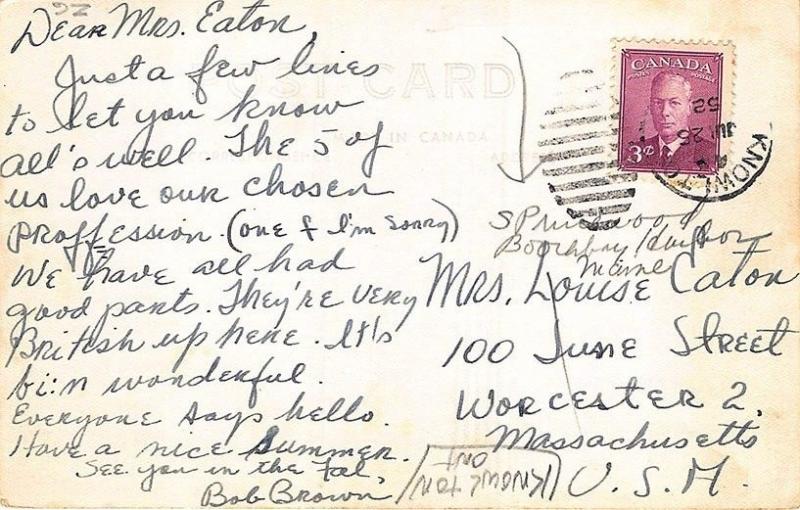 Dear Mrs. Eaton,
Just a few lines
to let you know
all's well. The 5 of
us love our chosen
proffession. (one f I'm sorry)
We have all had
good parts. They're very
British up here. It's
bi:n wonderful.
Everyone says hello.
Have a nice summer.
See you in the Fal,
Bob Brown
POST CARD
IN CANADA
CANADA
POSTES POSTAGE
3¢
JUL 25
52
KNOWLTON
Sprucewold
Boothbay Harbor
Maine
Mrs. Louise Eaton
100 June Street
Worcester 2,
Massachusetts
U. S. A.
Knowlton
Ont